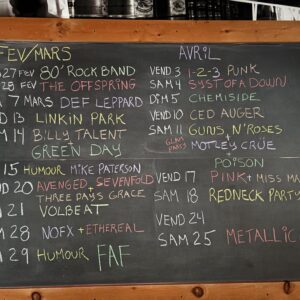 FEV/MARS
27 FEV 80' ROCK BAND
28 FEV THE OFFSPRING
7 MARS DEF LEPPARD
13 LINKIN PARK
14 BILLY TALENT
GREEN DAY
15 HUMOUR MIKE PATERSON
20 AVENGED SEVENFOLD +
THREE DAYS GRACE
21 VOLBEAT
28 NOFX + ETHEREAL
29 HUMOUR FAF
AVRIL
VEND 3 1-2-3 PUNK
SAM 4 SYST OF A DOWN
DIM 5 CHEMISIDE
VEND 10 CED AUGER
SAM 11 GUNS N' ROSES
GLAM PARTY MOTLEY CRÜE
POISON
VEND 17 PINK + MISS
SAM 18 REDNECK PARTY
VEND 24
SAM 25 METALLIC